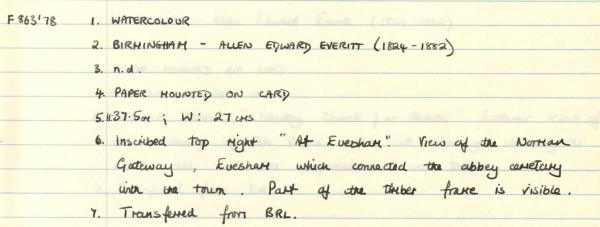 F 863'78 1. WATERCOLOUR
2. BIRMINGHAM - ALLEN EDWARD EVERITT (1824-1882)
3. n.d.
4. PAPER MOUNTED ON CARD
5. H: 37.5m ; W: 27 cms
6. Inscribed top right "At Evesham". View of the Norman
Gateway, Evesham which connected the abbey cemetery
with the town. Part of the timber frame is visible.
7. Transferred from BRL.